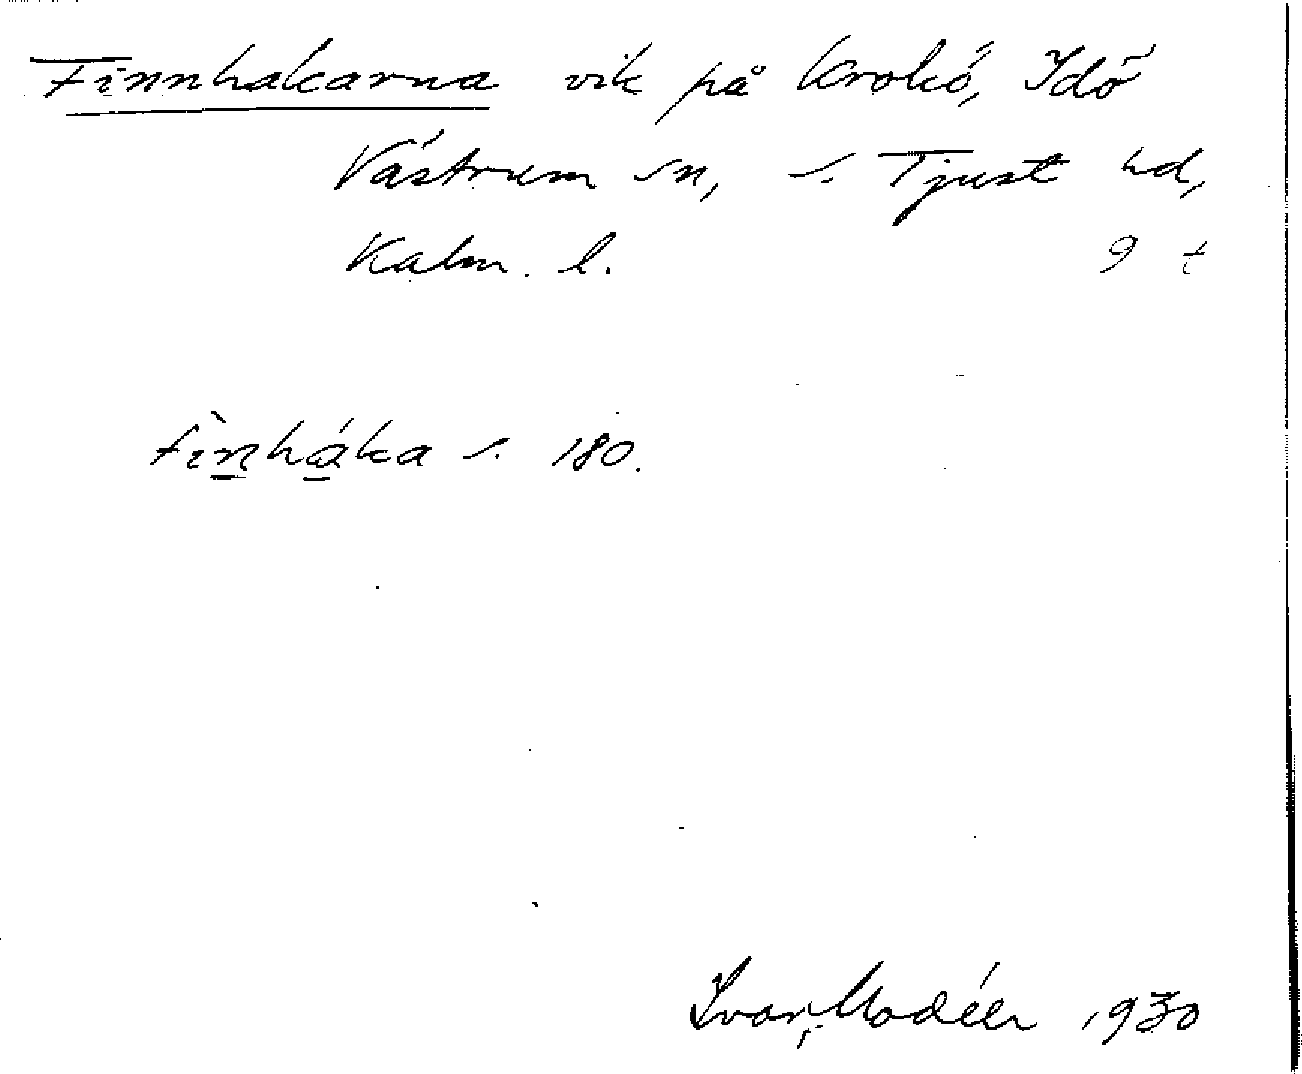 Finnhakarna vik på Krokö, Idö
Västrum sn, s. Tjust hd,
Kalm. l. 9 t
fìn̲há̲ka s. 180.
Ivar Modéer 1930